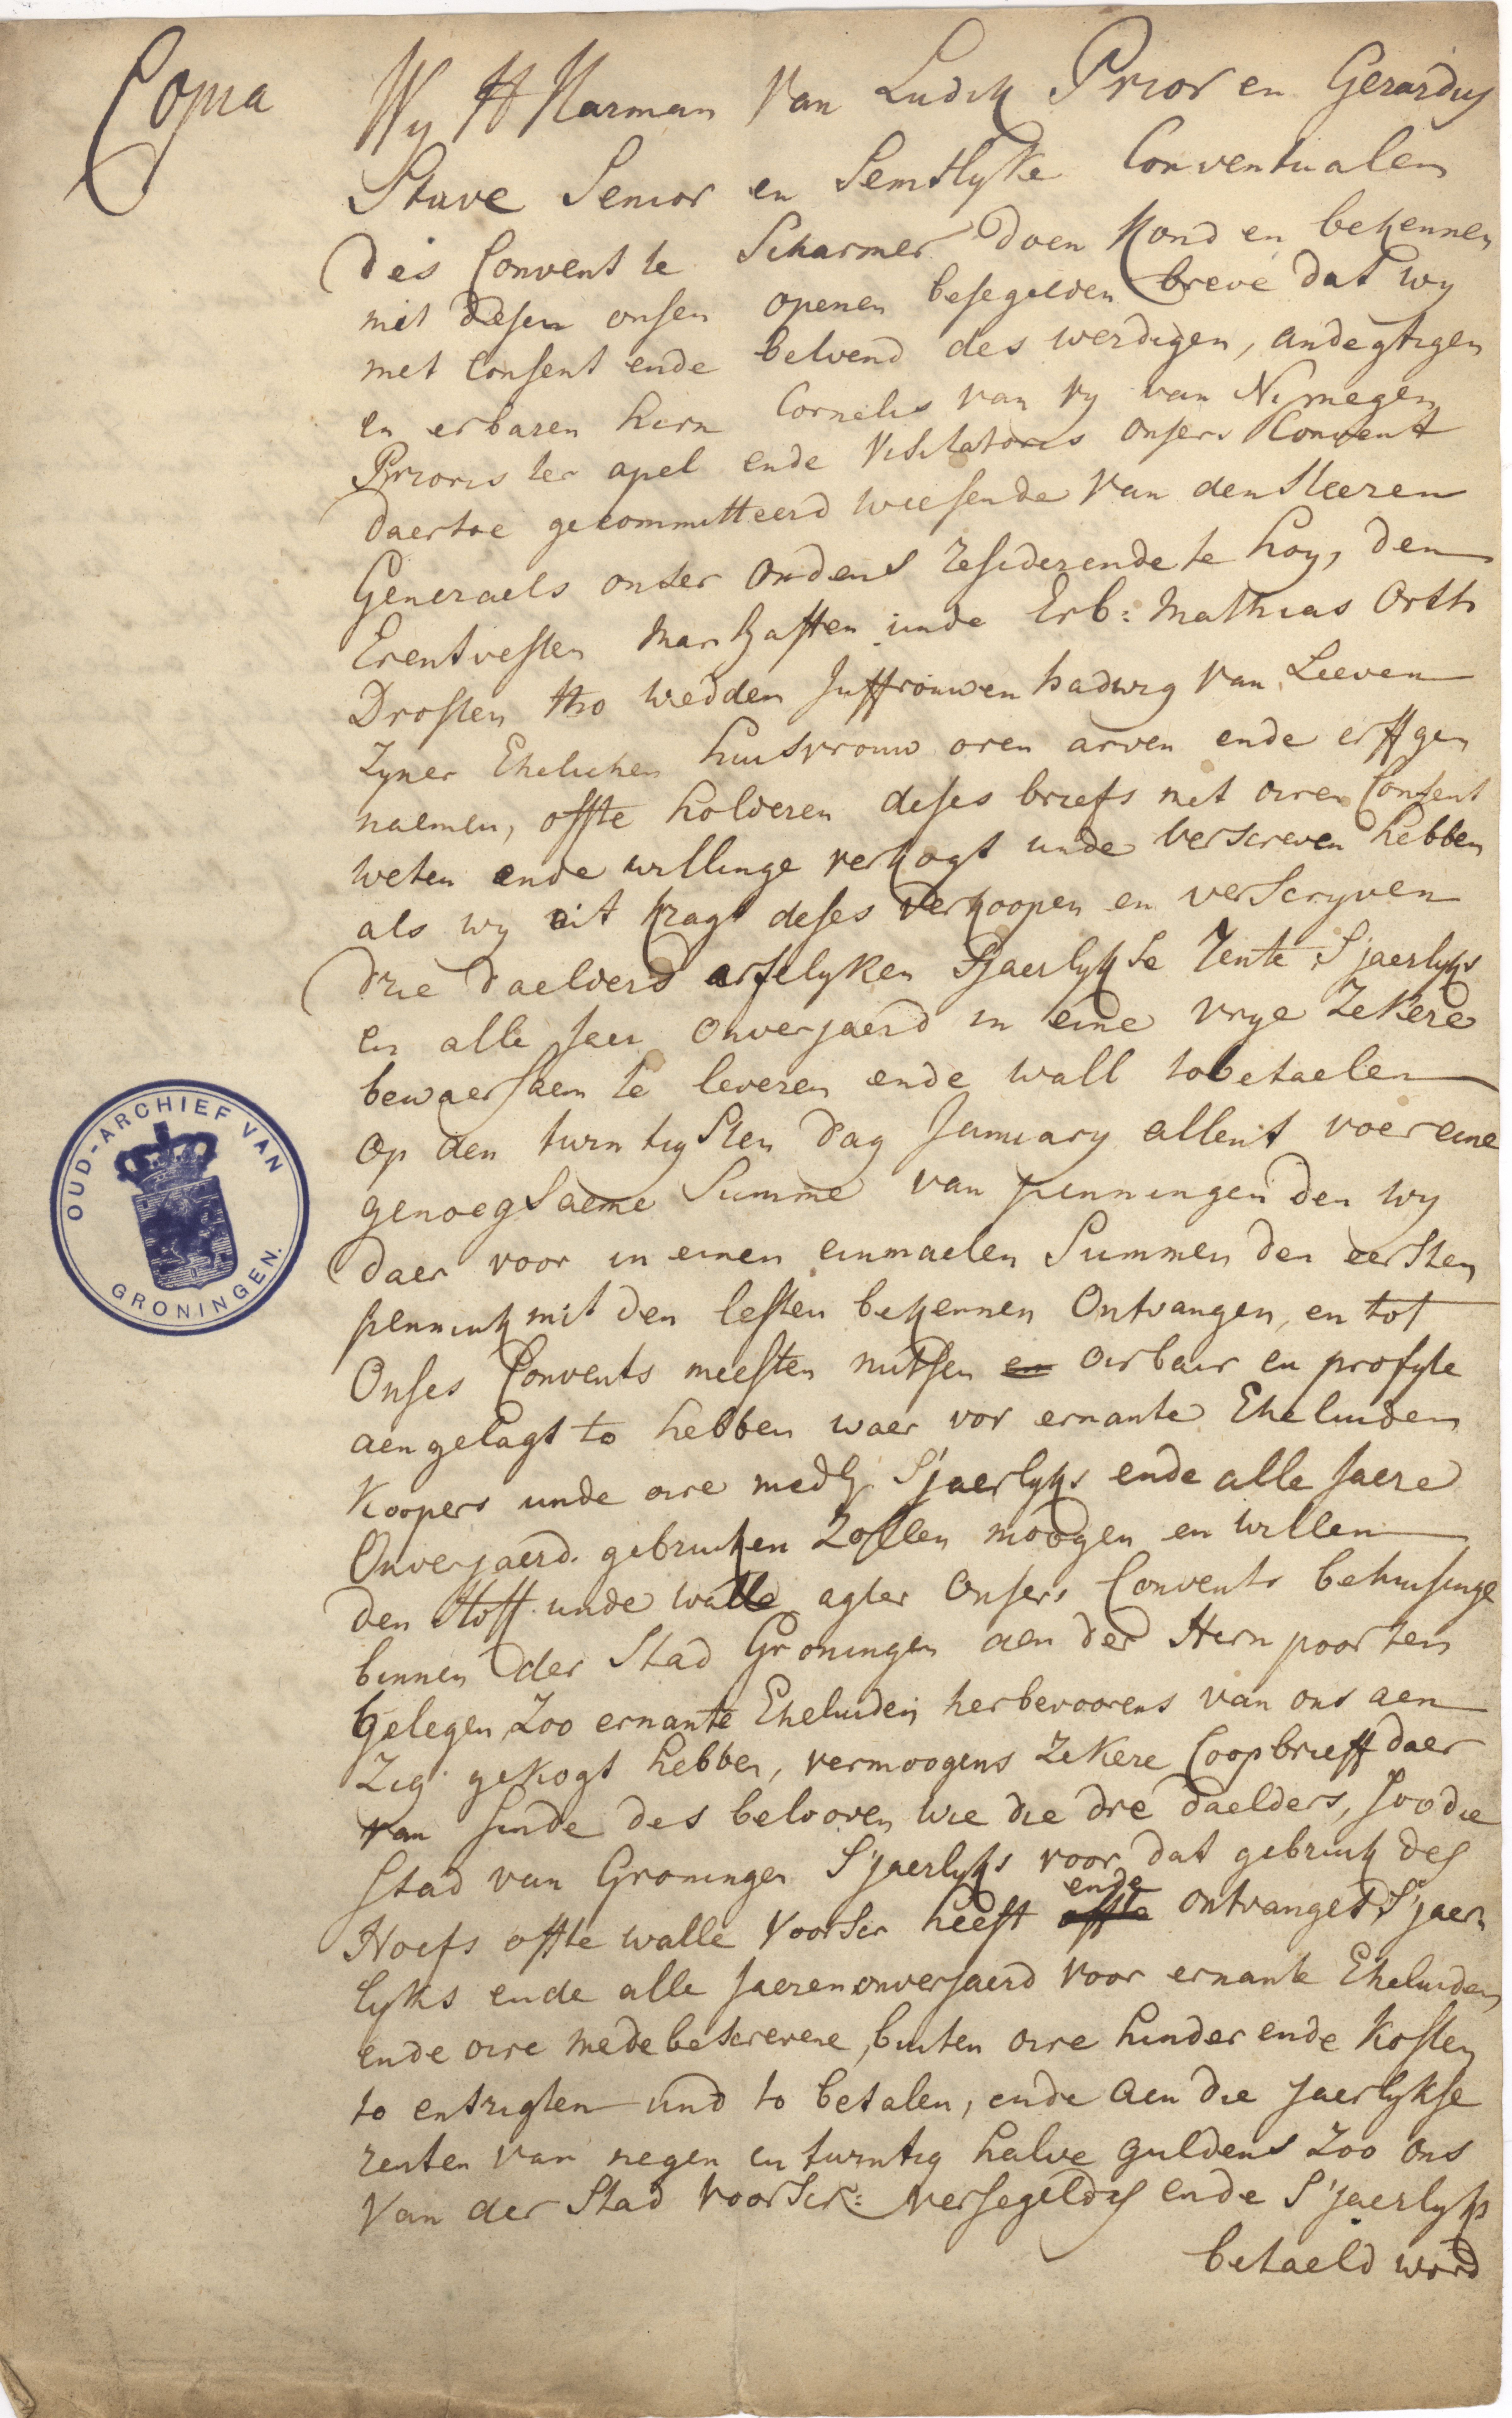 Copia
Wy H Harman van Ludik Prior en Gerardus
Stuve Senior en Semtlyke Conventualen
des Convent te Scharmer doen kond en bekennen
mit desen onsen openen besegelden breve dat wy
met Consent ende belvend des werdigen, andegtigen
en erbaren hern Cornelis van ry van Nimegen
Prioris ter apel ende Visitatoris onsers Convent
daertoe gecommitteerd wiesende van den Heeren
Generaels onser ordens residerende te hoy, den
Erentvesten Manhaften unde Erb: Mathias Orth
Drosten tho wedden Juffrouwen hadwig van Leeven
Zyner Ehelichen huisvrouw oren arven ende erffgen
naemen, offte holderen deses briefs met oiren Consent
weten ende willinge verkogt unde verscreven hebben
als wy uit kragt deses verkoopen en verscryven
drie daelders arfelyken Sjaerlykse Rente Sjaerlyks
en alle Jaer onverjaerd in eine vrye Zekere
bewaersaem te leveren ende wall tobetaelen
op den twintigsten dag January allent voer eine
genoegsaeme Summe van penningen den wy
daer voor in einen einmaelen Summen den eersten
pennink mit den lesten bekennen Ontvangen, en tot
Onses Convents meesten nutsen en oirbair en profyte
aengelagt to hebben waer vor ernante Eheluiden
Koopers unde oire medb: S'jaerlyks ende alle Jaere
Onverjaerd. gebruiken Zollen moogen en willen
den Hoff unde walle agter Onsers Convents behuisinge
binnen der Stad Groningen aen der Hern poorten
gelegen Zoo ernante Eheluiden herbevoorens van ons aen
Zig gekogt hebben, vermoogens Zekere Coopbrieff daer
van sinde des belooven wie die dre daelders, soo die
Stad van Groningen S'jaerlyks voor dat gebruik des
Hoefs offte walle voorscr heeft offte ende ontvanget, S'jaer
lyks ende alle Jaeren onverjaerd voor ernante Eheluiden
ende oire medebescrevene, buiten oire hinder ende Kosten
to entrigten und to betalen, ende aen die Jaerlykse
renten van negen en twintig halve guldens Zoo ons
van der Stad voorscr: versegeld is ende S'jaerlyks
betaeld word
OUD-ARCHIEF VAN
GRONINGEN.